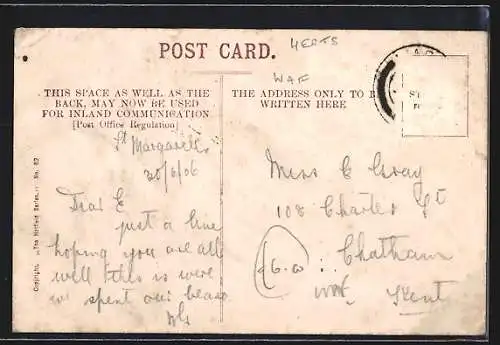 HERTS
POST CARD.
THIS SPACE AS WELL AS THE
BACK, MAY NOW BE USED
FOR INLAND COMMUNICATION
[Post Office Regulation]
THE ADDRESS ONLY TO B
WRITTEN HERE
St Margarets
20/6/06
Dear E
just a line
hoping you are all
well this is were
we spent our
Miss E Gray
108 Charles St
Chatham
Kent
Copyright. "The Hatfield Series." No. 62